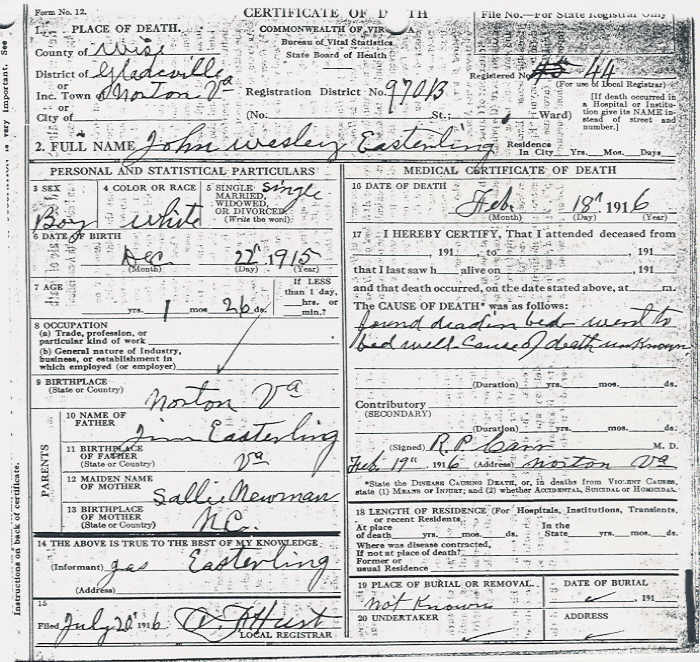 Form No. 12.
CERTIFICATE OF DEATH
File No.—For State Registrar Only
1. PLACE OF DEATH.
COMMONWEALTH OF VIRGINIA
Bureau of Vital Statistics
State Board of Health
County of Wise
District of Gladeville
or
Inc. Town of Norton Va
or
City of
Registration District No. 970B
Registered No. 45 44
(For use of Local Registrar)
(No. St.; Ward)
[If death occurred in a Hospital or Institution give its NAME instead of street and number.]
2. FULL NAME John Wesley Easterling
Residence In City Yrs. Mos. Days
PERSONAL AND STATISTICAL PARTICULARS
3 SEX
Boy
4 COLOR OR RACE
White
5 SINGLE, MARRIED, WIDOWED, OR DIVORCED (Write the word)
Single
6 DATE OF BIRTH
Dec 22" 1915
(Month) (Day) (Year)
7 AGE
yrs. 1 mos. 26 ds.
If LESS than 1 day, hrs. or min.?
8 OCCUPATION
(a) Trade, profession, or particular kind of work
(b) General nature of industry, business, or establishment in which employed (or employer)
9 BIRTHPLACE
(State or Country)
Norton Va
PARENTS
10 NAME OF FATHER
Jim Easterling
11 BIRTHPLACE OF FATHER
(State or Country)
Va
12 MAIDEN NAME OF MOTHER
Sallie Newman
13 BIRTHPLACE OF MOTHER
(State or Country)
N.C.
14 THE ABOVE IS TRUE TO THE BEST OF MY KNOWLEDGE
(Informant) Jas Easterling
(Address)
15
Filed July 20" 1916
LOCAL REGISTRAR
MEDICAL CERTIFICATE OF DEATH
16 DATE OF DEATH
Feb. 18" 1916
(Month) (Day) (Year)
17 I HEREBY CERTIFY, That I attended deceased from
, 191 , to , 191
that I last saw h alive on , 191
and that death occurred, on the date stated above, at m.
The CAUSE OF DEATH* was as follows:
found dead in bed - went to
bed well. Cause of death unknown
(Duration) yrs. mos. ds.
Contributory
(SECONDARY)
(Duration) yrs. mos. ds.
(Signed) R. P. Carr M. D.
Feb. 19", 1916 (Address) Norton Va
*State the DISEASE CAUSING DEATH, or, in deaths from VIOLENT CAUSES, state (1) MEANS OF INJURY; and (2) whether ACCIDENTAL, SUICIDAL or HOMICIDAL.
18 LENGTH OF RESIDENCE (For Hospitals, Institutions, Transients, or recent Residents
At place of death yrs. mos. ds. In the State yrs. mos. ds.
Where was disease contracted, If not at place of death?
Former or usual Residence
19 PLACE OF BURIAL OR REMOVAL
Not Known
DATE OF BURIAL
, 191
20 UNDERTAKER
ADDRESS
Instructions on back of certificate.
is very important. See